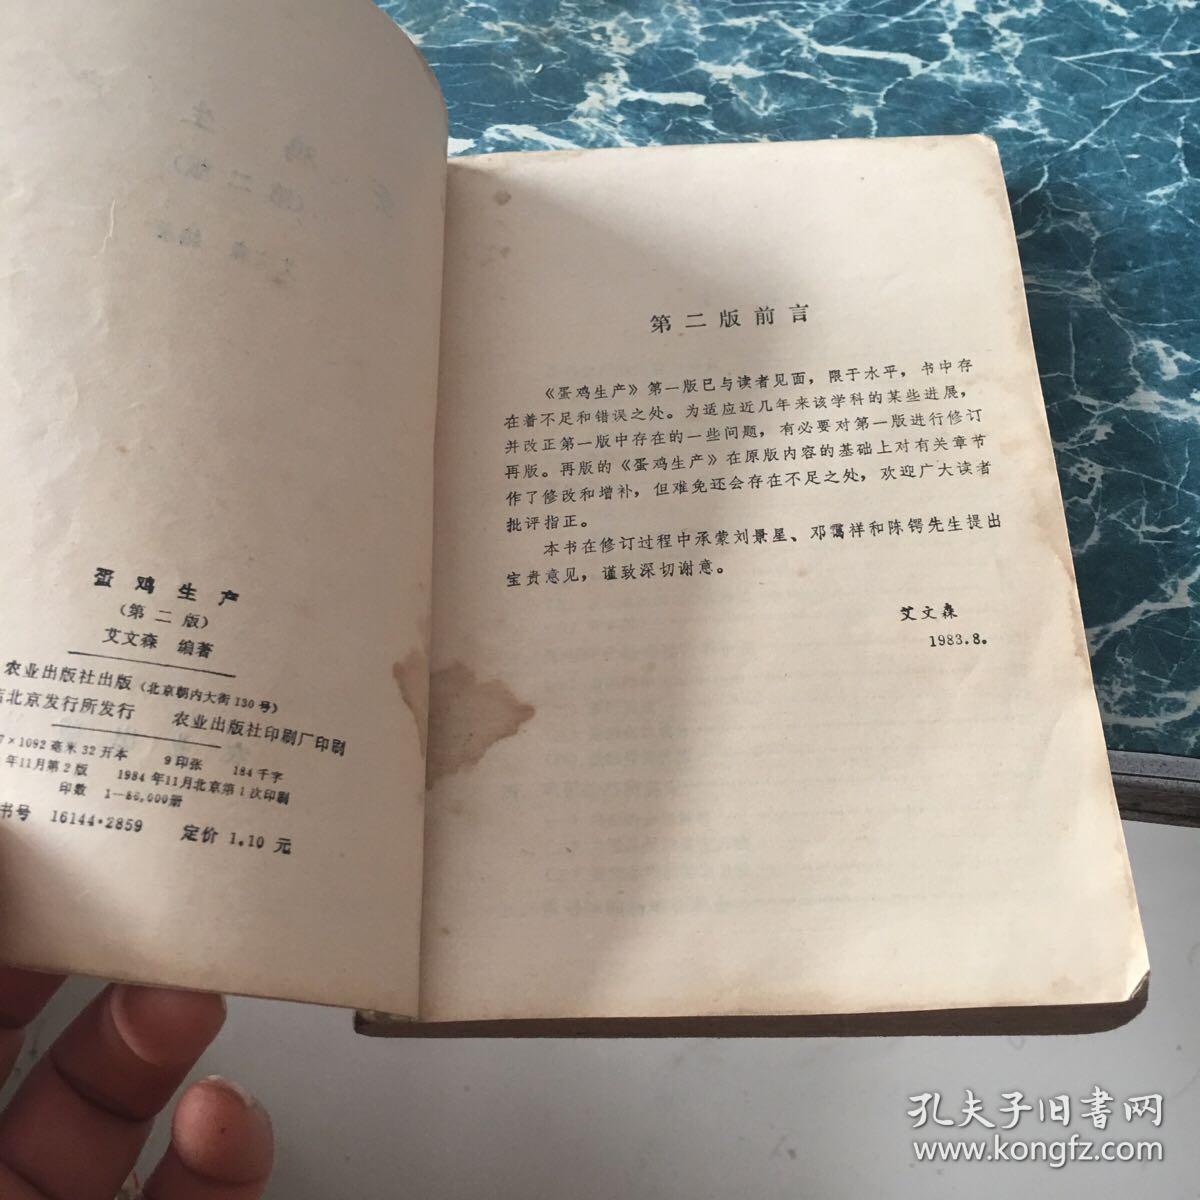 蛋鸡生产
(第二版)
艾文森 编著
农业出版社出版 (北京朝内大街130号)
北京发行所发行 农业出版社印刷厂印刷
×1092毫米32开本 9印张 184千字
年11月第2版 1984年11月北京第1次印刷
印数 1—86,000册
书号 16144·2859 定价 1.10元
第二版前言
《蛋鸡生产》第一版已与读者见面，限于水平，书中存
在着不足和错误之处。为适应近几年来该学科的某些进展，
并改正第一版中存在的一些问题，有必要对第一版进行修订
再版。再版的《蛋鸡生产》在原版内容的基础上对有关章节
作了修改和增补，但难免还会存在不足之处，欢迎广大读者
批评指正。
本书在修订过程中承蒙刘景星、邓霭祥和陈锷先生提出
宝贵意见，谨致深切谢意。
艾文森
1983.8.
孔夫子旧书网
www.kongfz.com